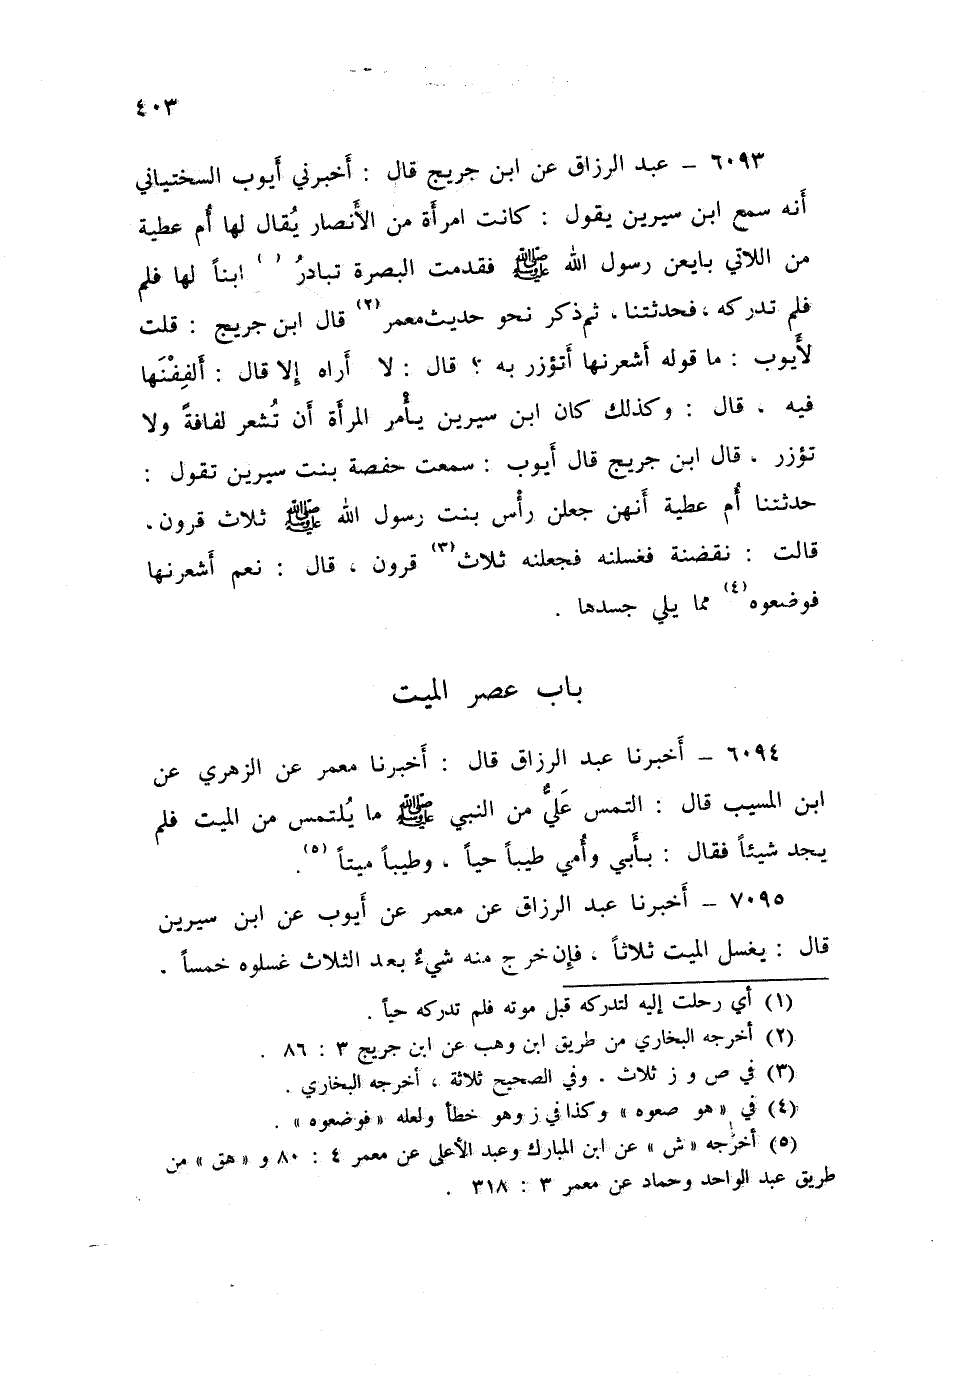 ٤٠٣
٦٠٩٣ – عبد الرزاق عن ابن جريج قال : أَخبرني أَيوب السختياني
أَنه سمع ابن سيرين يقول : كانت امرأَة من الأَنصار يُقال لها أُم عطية
من اللاتي بايعن رسول الله ﷺ فقدمت البصرة تبادرُ ( ) ابناً لها فلم
فلم تدركه ، فحدثتنا ، ثم ذكر نحو حديث معمر(٢) قال ابن جريج : قلت
لأَيوب : ما قوله أَشعرنها أَتؤزر به ؟ قال : لا أَراه إلا قال : أَلفِفْنَها
فيه . قال : وكذلك كان ابن سيرين يأْمر المرأَة أَن تُشعر لفافةً ولا
تؤزر . قال ابن جريج قال أَيوب : سمعت حفصة بنت سيرين تقول :
حدثتنا أُم عطية أَنهن جعلن رأْس بنت رسول الله ﷺ ثلاث قرون .
قالت : نقضنة فغسلنه فجعلنه ثلاث(٣) قرون ، قال : نعم أَشعرنها
فوضعوه(٤) مما يلي جسدها .
باب عصر الميت
٦٠٩٤ – أَخبرنا عبد الرزاق قال : أَخبرنا معمر عن الزهري عن
ابن المسيب قال : التمس عَليٌّ من النبي ﷺ ما يُلتمس من الميت فلم
يجد شيئاً فقال : بأَبي وأُمي طيباً حياً ، وطيباً ميتاً (٥) .
٧٠٩٥ – أَخبرنا عبد الرزاق عن معمر عن أَيوب عن ابن سيرين
قال : يغسل الميت ثلاثاً ، فإن خرج منه شيءٌ بعد الثلاث غسلوه خمساً .
(١) أي رحلت إليه لتدركه قبل موته فلم تدركه حياً .
(٢) أخرجه البخاري من طريق ابن وهب عن ابن جريج ٣ : ٨٦ .
(٣) في ص و ز ثلاث . وفي الصحيح ثلاثة ، أخرجه البخاري .
(٤) في « هو صعوه » وكذا في ز وهو خطأ ولعله « فوضعوه » .
(٥) أخرجه « ش » عن ابن المبارك وعبد الأعلى عن معمر ٤ : ٨٠ و « هق » من
طريق عبد الواحد وحماد عن معمر ٣ : ٣١٨ .